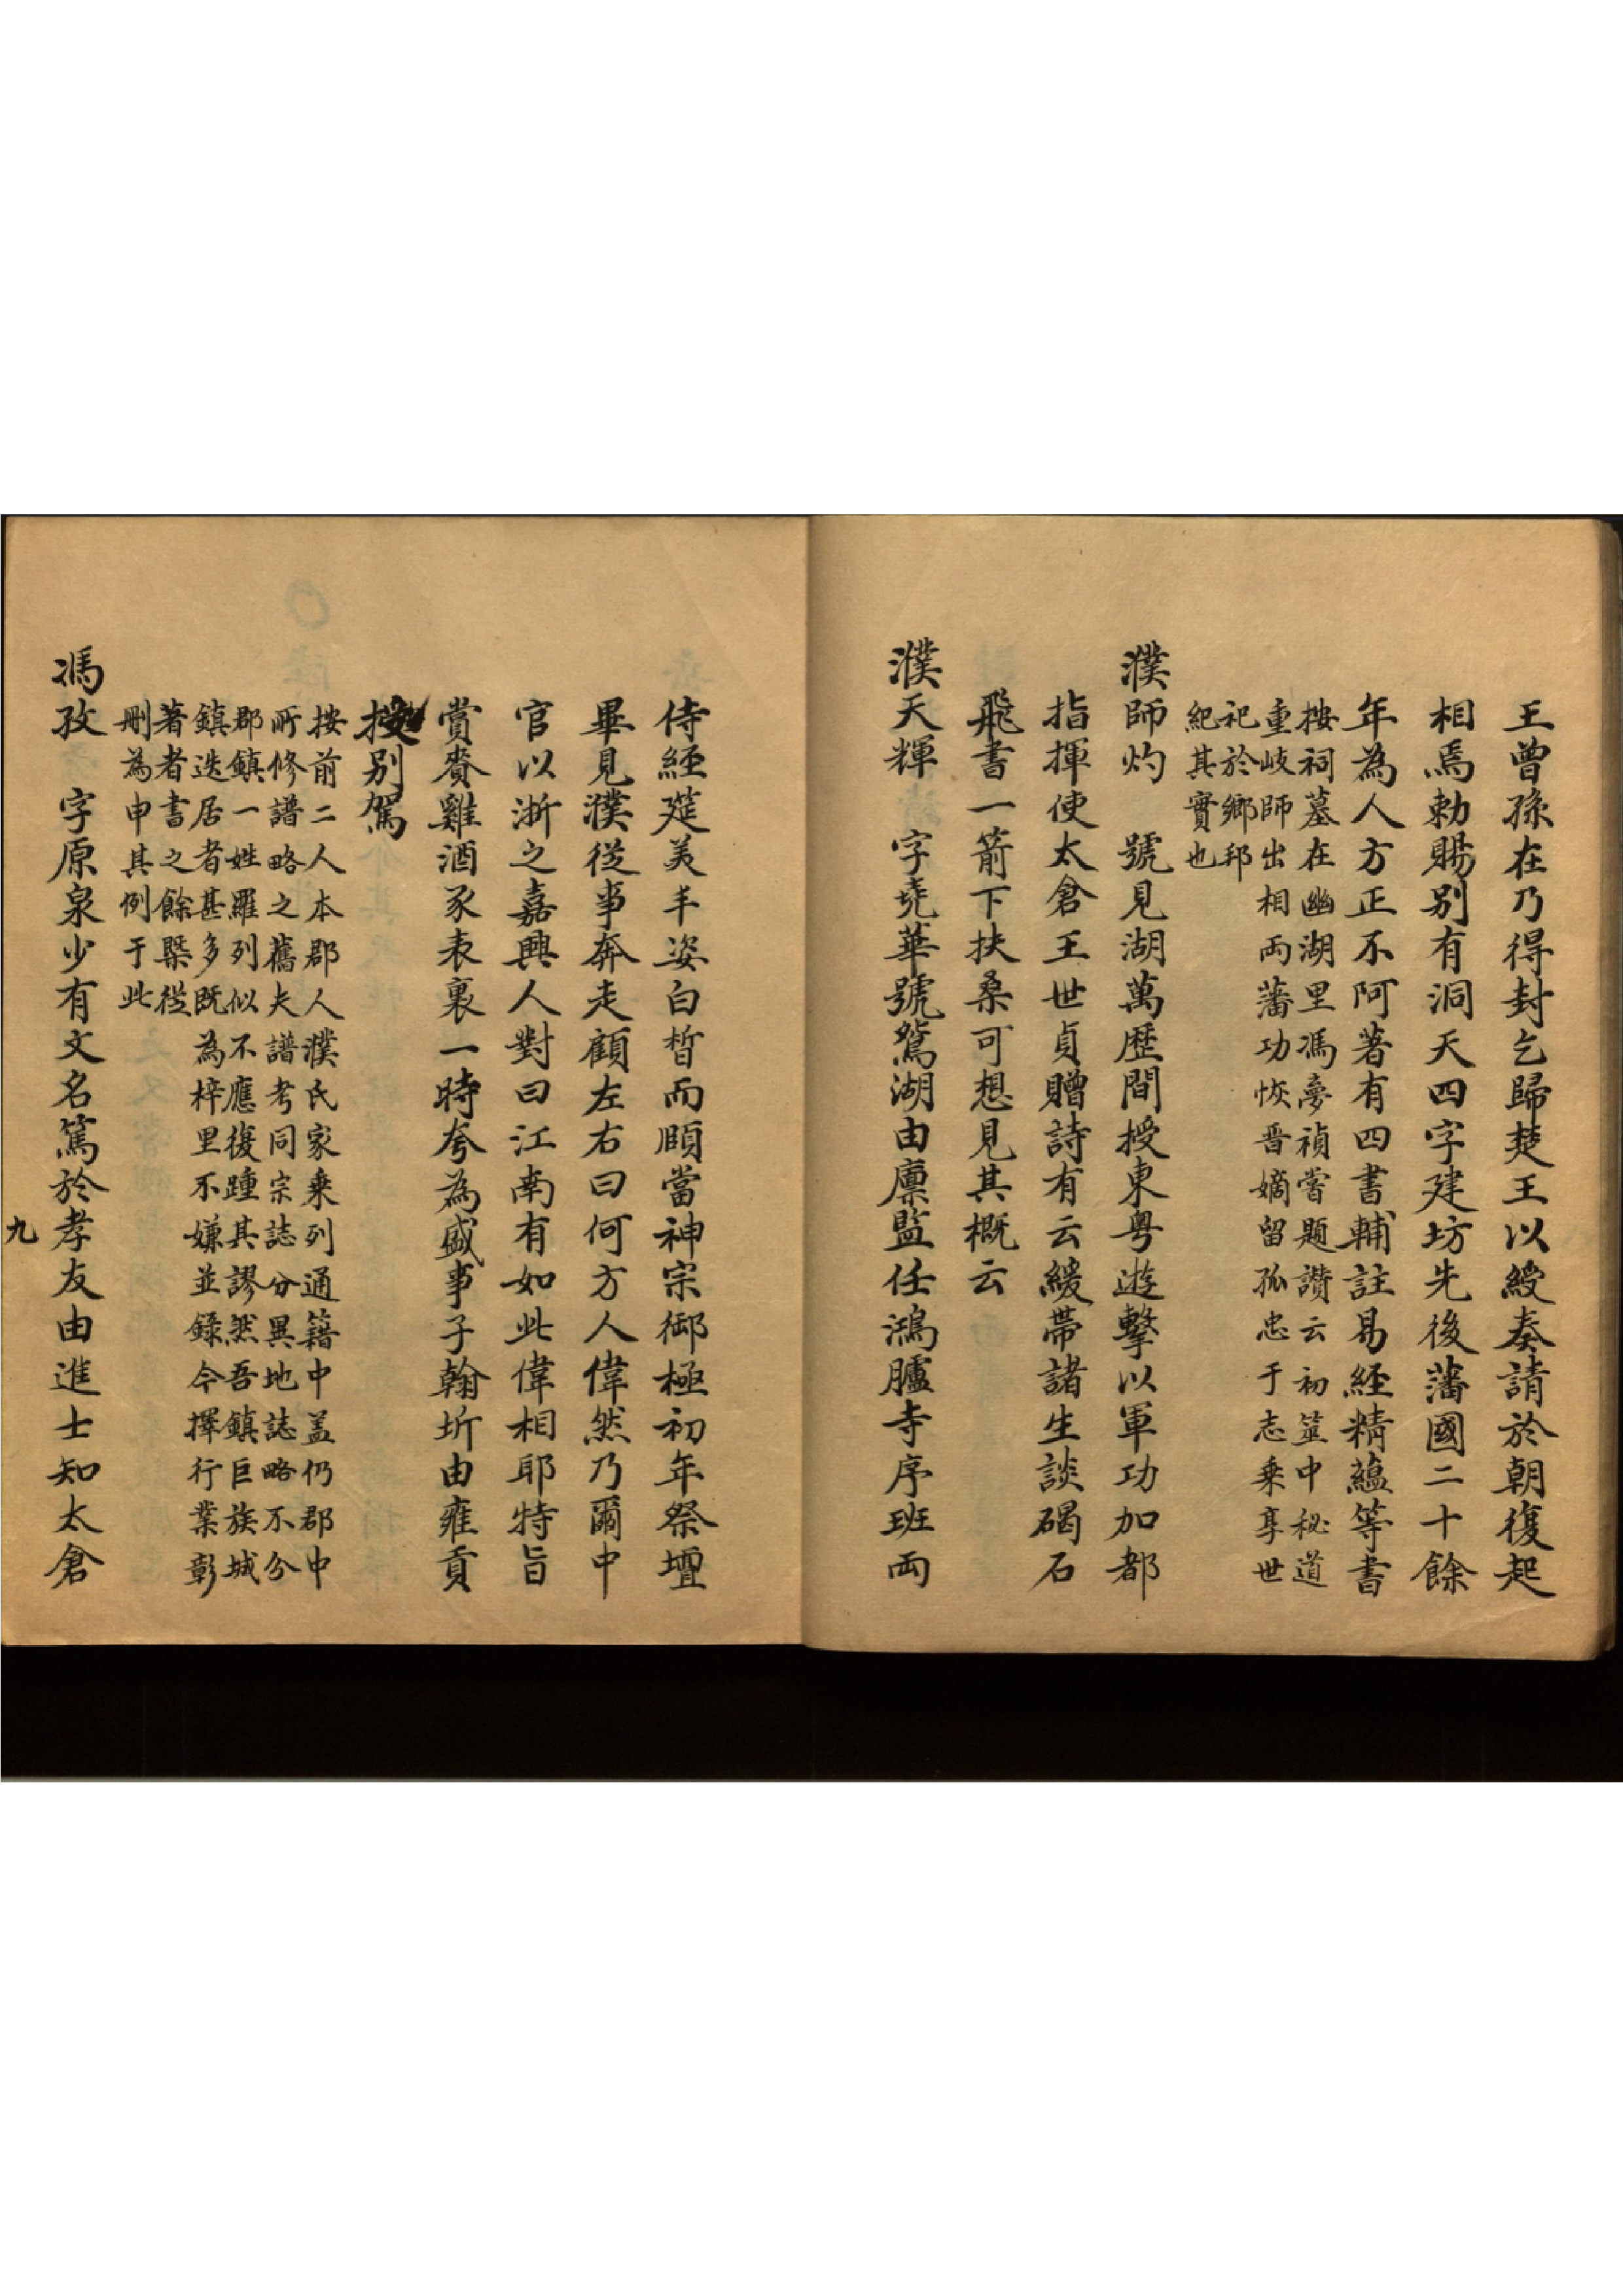 王曾孫在乃得封乞歸楚王以綬奏請於朝復起
相焉勅賜別有洞天四字建坊先後藩國二十餘
年為人方正不阿著有四書輔註易經精蘊等書
按祠墓在幽湖里馮夢禎嘗題讚云初筮中秘道
重岐師出相兩藩功恢晋嫡留孤忠于志乘享世
祀於鄉邦
紀其實也
濮師灼 號見湖萬歷間授東粤遊擊以軍功加都
指揮使太倉王世貞贈詩有云緩帶諸生談碣石
飛書一箭下扶桑可想見其概云
濮天輝 字堯華號鴛湖由廪監任鴻臚寺序班両
侍經筵美丰姿白皙而頎當神宗御極初年祭壇
畢見濮從事奔走顧左右曰何方人偉然乃爾中
官以浙之嘉興人對曰江南有如此偉相耶特旨
賞賚雞酒豕表裏一時夸為盛事子翰圻由雍貢
授別駕
按前二人本郡人濮氏家乗列通籍中盖仍郡中
所修譜略之舊夫譜考同宗誌分異地誌略不分
郡鎮一姓羅列似不應復踵其謬然吾鎮巨族城
鎮迭居者甚多既為梓里不嫌並錄今擇行業彰
著者書之餘槩從
刪為申其例于此
馮孜 字原泉少有文名篤於孝友由進士知太倉
九